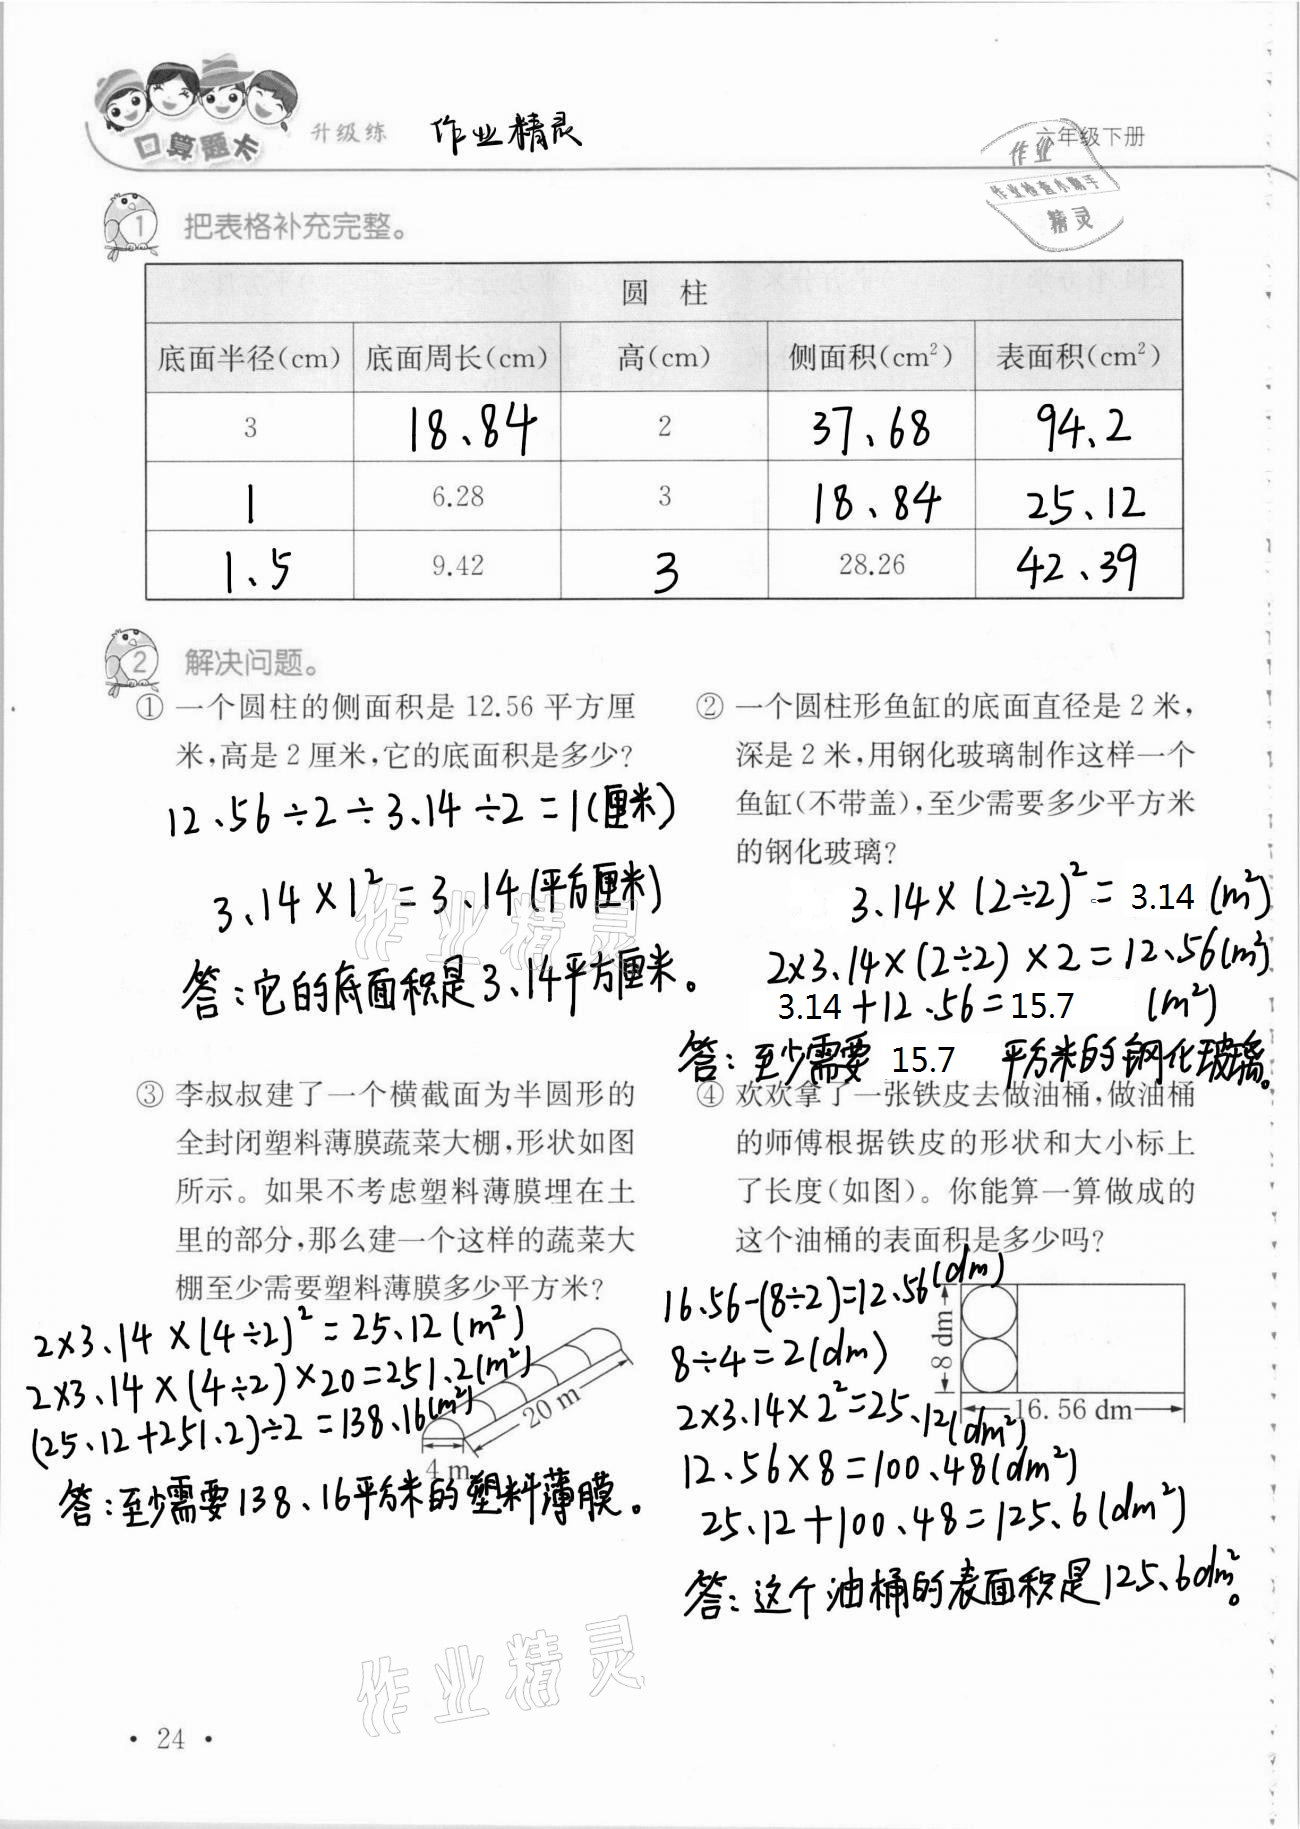 口算题卡 升级练 作业精灵 六年级下册
作业
作业检查小助手
精灵
1 把表格补充完整。
圆 柱
底面半径(cm) 底面周长(cm) 高(cm) 侧面积(cm²) 表面积(cm²)
3 18.84 2 37.68 94.2
1 6.28 3 18.84 25.12
1.5 9.42 3 28.26 42.39
2 解决问题。
① 一个圆柱的侧面积是 12.56 平方厘
米,高是 2 厘米,它的底面积是多少?
12.56÷2÷3.14÷2=1(厘米)
3.14×1²=3.14(平方厘米)
答:它的底面积是3.14平方厘米。
② 一个圆柱形鱼缸的底面直径是 2 米,
深是 2 米,用钢化玻璃制作这样一个
鱼缸(不带盖),至少需要多少平方米
的钢化玻璃?
3.14×(2÷2)²=3.14(m²)
2×3.14×(2÷2)×2=12.56(m²)
3.14+12.56=15.7 (m²)
答:至少需要 15.7 平方米的钢化玻璃。
③ 李叔叔建了一个横截面为半圆形的
全封闭塑料薄膜蔬菜大棚,形状如图
所示。如果不考虑塑料薄膜埋在土
里的部分,那么建一个这样的蔬菜大
棚至少需要塑料薄膜多少平方米?
2×3.14×(4÷2)²=25.12(m²)
2×3.14×(4÷2)×20=251.2(m²)
(25.12+251.2)÷2=138.16(m²)
20 m
4 m
答:至少需要138.16平方米的塑料薄膜。
④ 欢欢拿了一张铁皮去做油桶,做油桶
的师傅根据铁皮的形状和大小标上
了长度(如图)。你能算一算做成的
这个油桶的表面积是多少吗?
16.56-(8÷2)=12.56(dm)
8÷4=2(dm)
2×3.14×2²=25.12(dm²)
12.56×8=100.48(dm²)
25.12+100.48=125.6(dm²)
8 dm
16.56 dm
答:这个油桶的表面积是125.6dm²。
作业精灵
作业精灵
· 24 ·